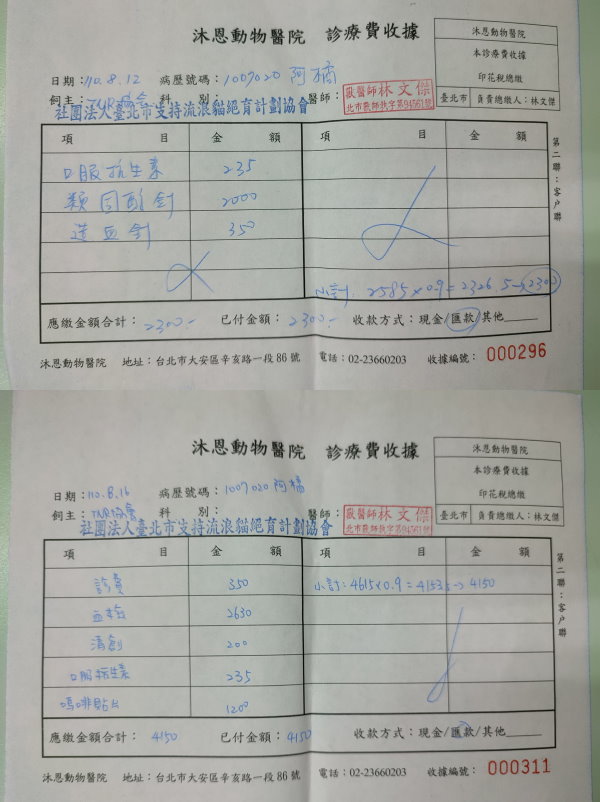 沐恩動物醫院 診療費收據
沐恩動物醫院
本診療費收據
印花稅總繳
臺北市 負責總繳人：林文傑
日期：110.8.12 病歷號碼：1007020 阿橘
飼主：TNR協會 科別： 醫師：
獸醫師林文傑
北市獸醫師執字第94561號
社團法人臺北市支持流浪貓絕育計劃協會
項目 金額 項目 金額
口服抗生素 235
類固醇針 2000
造血針 350
小計: 2585×0.9=2326.5→2300
第二聯：客戶聯
應繳金額合計：2300.- 已付金額：2300.- 收款方式：現金/匯款/其他
沐恩動物醫院 地址：台北市大安區辛亥路一段86號 電話：02-23660203 收據編號：000296
沐恩動物醫院 診療費收據
沐恩動物醫院
本診療費收據
印花稅總繳
臺北市 負責總繳人：林文傑
日期：110.8.16 病歷號碼：1007020 阿橘
飼主：TNR協會 科別： 醫師：
獸醫師林文傑
北市獸醫師執字第94561號
社團法人臺北市支持流浪貓絕育計劃協會
項目 金額 項目 金額
診費 350 小計:4615×0.9=4153.5→4150
血檢 2630
清創 200
口服抗生素 235
嗎啡貼片 1200
第二聯：客戶聯
應繳金額合計：4150 已付金額：4150 收款方式：現金/匯款/其他
沐恩動物醫院 地址：台北市大安區辛亥路一段86號 電話：02-23660203 收據編號：000311